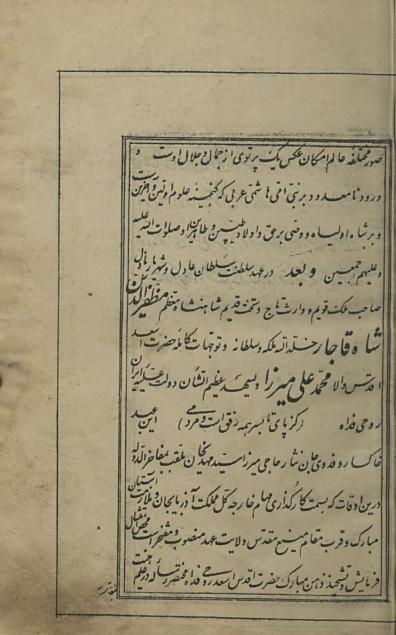 صور مختلفه عالم امکان عکس یک پرتوی از جمال و جلال اوست و
درود نامعدود بر نبی امی هاشمی عربی که گنجینه علوم اولین و آخرین است
و بر شاه اولیاء و وصی برحق و اولاد طیبین و طاهرین او صلوات الله علیه
و علیهم اجمعین و بعد در عهد سلطنت سلطان عادل و شهریار باذل
صاحب ملک قویم و وارث تاج و تخت قدیم شاهنشاه معظم مظفرالدین
شاه قاجار خلد الله ملکه و سلطانه و توجهات کامله حضرت اسعد
اقدس والا محمد علی میرزا ولیعهد عظیم الشان دولت علیه ایران
روحی فداه (کز پای تا بسر همه رفق است و مردمی) این عبد
خاکسار و فدوی جان نثار حاجی میرزا سید مهدیخان ملقب بمفاخر الدوله
درین اوقات که بسمت کارگذاری مهام خارجه کل مملکت آذربایجان و ملازمت آستان
مبارک و قرب مقام منیع مقدس ولایت عهد منصوب و مفتخر است محض امتثال
فرمایش و تشحیذ ذهن مبارک حضرت اقدس اسعد روحی فداه مختصر رساله در علم هیئت